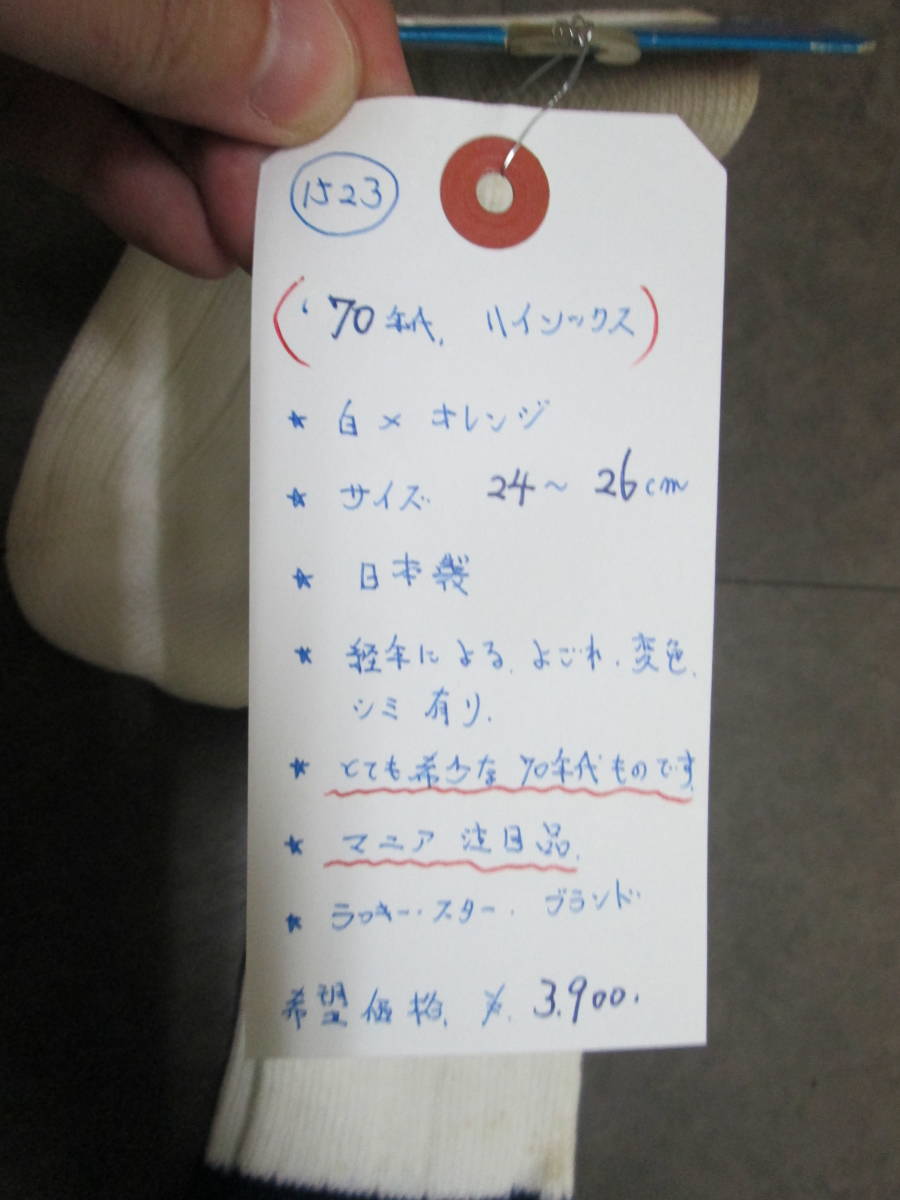 1523
('70年代. ハイソックス)
★ 白×オレンジ
★ サイズ 24～26cm
★ 日本製
★ 経年による.よごれ.変色.
シミ有り.
★ とても希少な70年代ものです.
★ マニア注目品.
★ ラッキー・スター. ブランド.
希望価格. ¥.3.900.